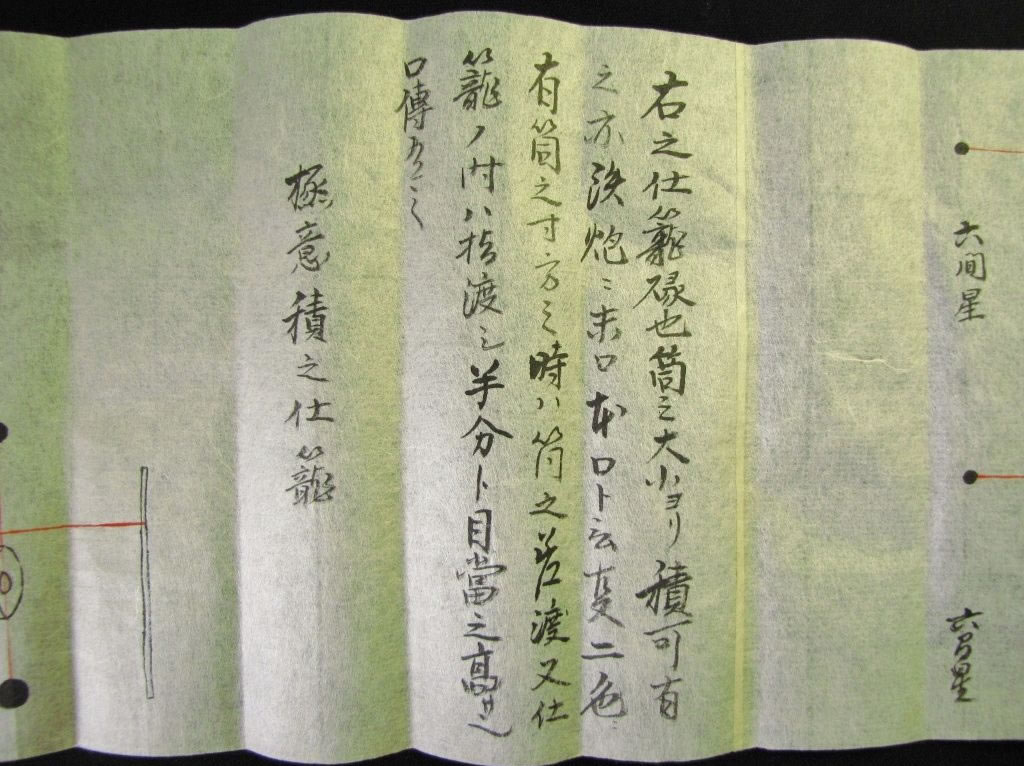 六間星
六間星
右之仕籠様也筒之大小ヨリ積可有
之亦鉄炮ニ末口本口ト云支二色
有筒之寸方之時ハ筒之差渡又仕
籠ノ時ハ指渡シ半分ト目當之高サ
口傳
極意積之仕籠